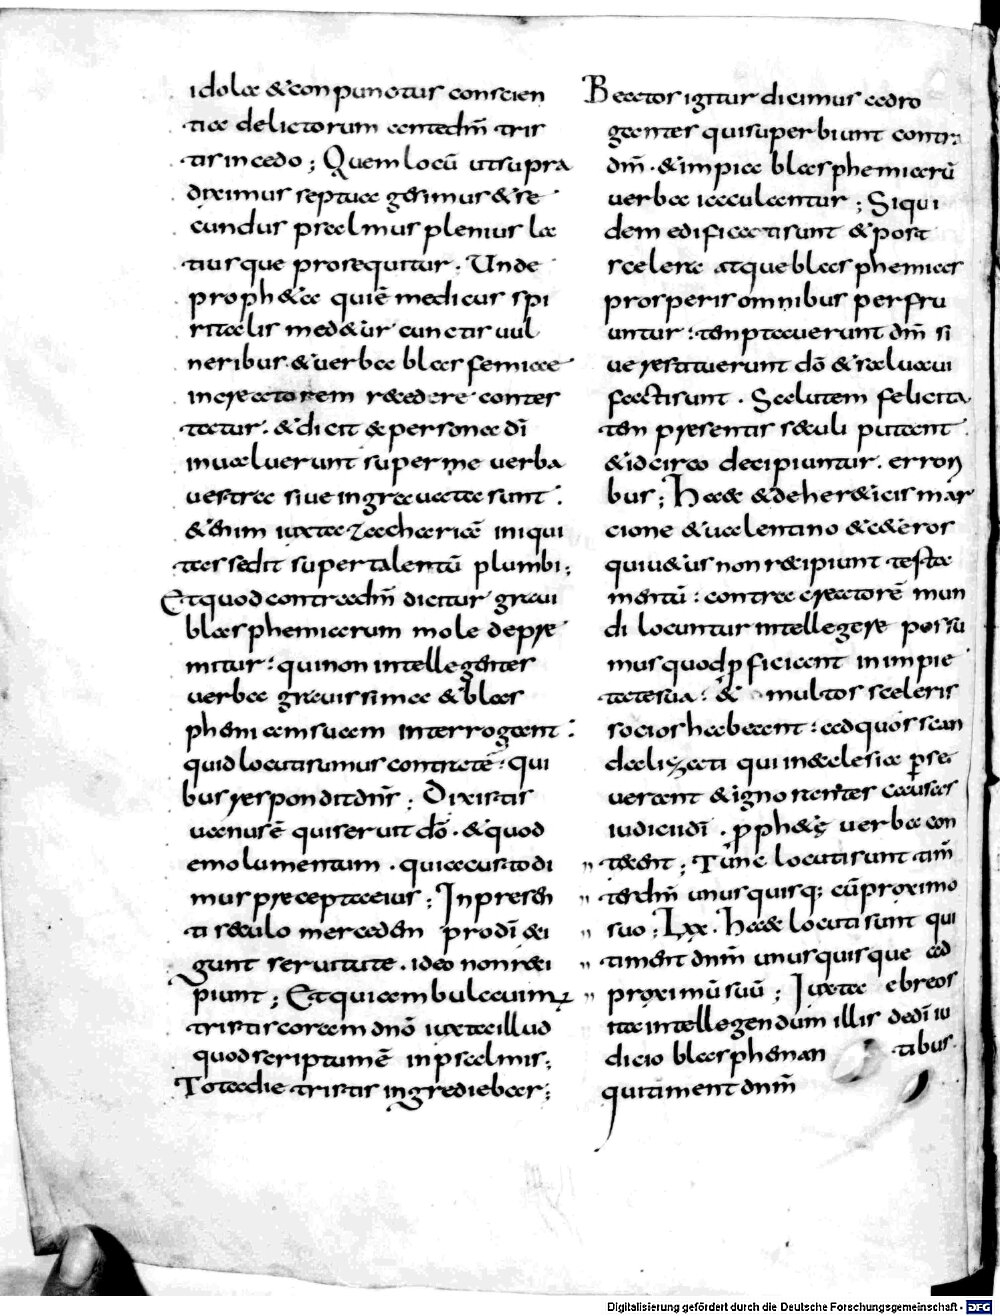 idola & conpunctus conscien
tia delictorum ante dm̄ tris
tis incedo ; Quem locū ut supra
diximus septuagesimus & se
cundus psalmus plenius la
tiusque prosequitur . Unde
proph&a quiē medicus spi
ritalis med&ur cunctis uul
neribus . & uerba blasfemiae
in creatorem r&edere contes
tatur . & dicit & persona dī
inualuerunt super me uerba
uestra siue ingrauata sunt :
& enim iuxta zacchariā iniqui
tas sedit super talentū plumbi ;
Et quod contra dm̄ dicitur graui
blasphemiarum mole depre
mitur : qui non intellegentes
uerba grauissima & blas
phemiam suam interrogant :
quid locuti sumus contra tē : qui
bus respondit dn̄s ; Dixistis
uanus ē qui seruit dō . & quod
emolumentum . quia custodi
mus precepta eius ; In presen
ti sęculo mercedem pro dī &ei
gunt seruitute . ideo non r&ei
piunt ; Et quia ambulauimus
tristis coram dnō iuxta illud
quod scriptum ē in psalmis ;
Tota die tristis ingrediebar ;
Beatos igitur dicimus adro
gantes qui superbiunt contra
dm̄ . & impia blasphemiarū
uerba iaculantur ; Siqui
dem edificati sunt & post
scelera atque blasphemias
prosperis omnibus perfru
untur : temptauerunt dm̄ si
ue restituerunt dō & saluaui
facti sunt . Salutem felicita
tem presentis saeculi putant .
& idcirco decipiuntur . errori
bus ; Haec & de her&icis mar
cione & ualentino & c&eros
qui u&us non recipiunt testa
mentū : contra creatorē mun
di locuntur intellegere possu
mus quod ꝓficiant in impie
tate sua : & multos sceleris
socios habeant : ad quos scan
dalizati qui in aeclesia perse
uerant & ignorantes causas
iudicii dī . ꝓph&ę uerba con
tecent ; Tunc locuti sunt tim
tes dm̄ unus quisq; cū proximo
suo ; Lxx . Haec locuti sunt qui
timent dnm̄ unusquisque ad
proximū suū ; Iuxta ebreos
ita intellegendum illis de dī iu
dicio blaspheman tibus .
qui timent dnm̄
Digitalisierung gefördert durch die Deutsche Forschungsgemeinschaft - DFG